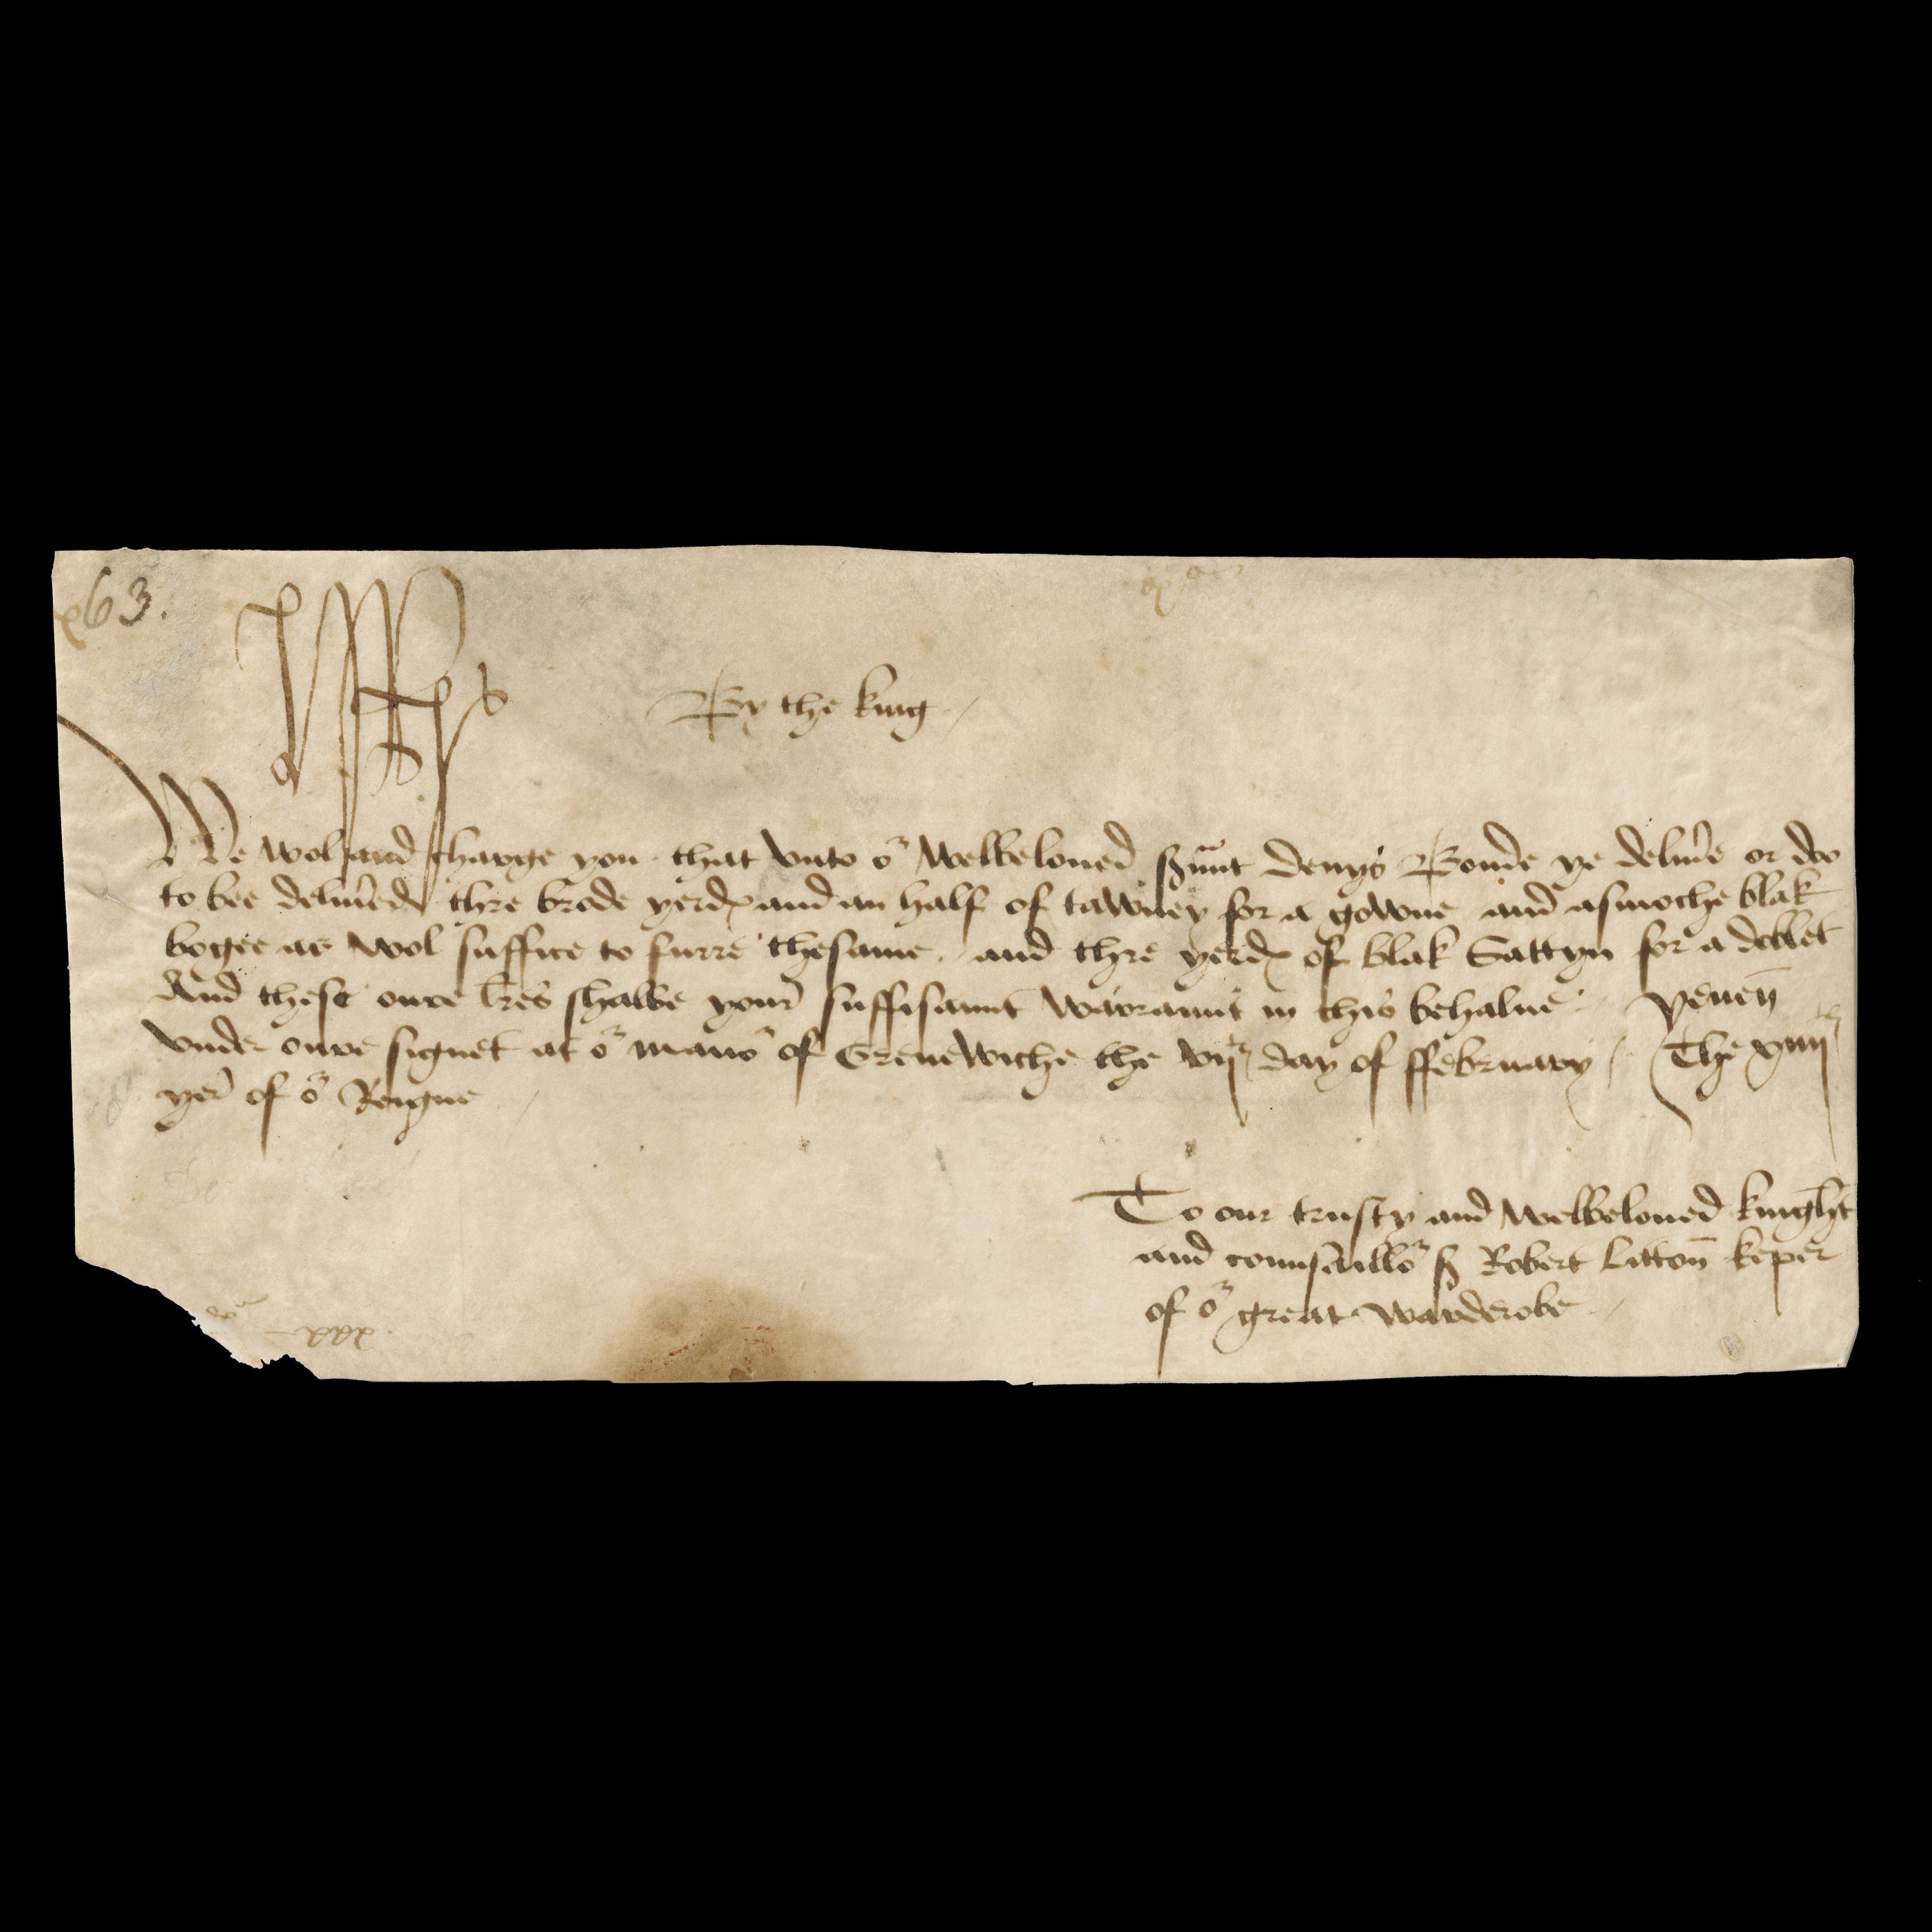 63.
HR
By the king
We wol and charge you that vnto oʳ welbeloued sʳuaunt Denys Bonde ye deliuʳe or doo
to bee deliuʳed thre brode yerdꝭ and an half of tawney for a gowne and asmoche blak
bogee as wol suffice to furre thesame and thre yerdꝭ of blak Sattyn for a doblet
And these oure lr̄es shalbe your suffisaunt warraunt in this behalue Yeuen̄
vnder oure signet at oʳ manoʳ of Grenewiche the vijᵗʰ day of ffebruary The xiiijᵗʰ
yer of oʳ Reigne
To our trusty and welbeloued knigħt
and counsailloʳ sʳ Robert Litton̄ keper
of oʳ great warderobe
xxx